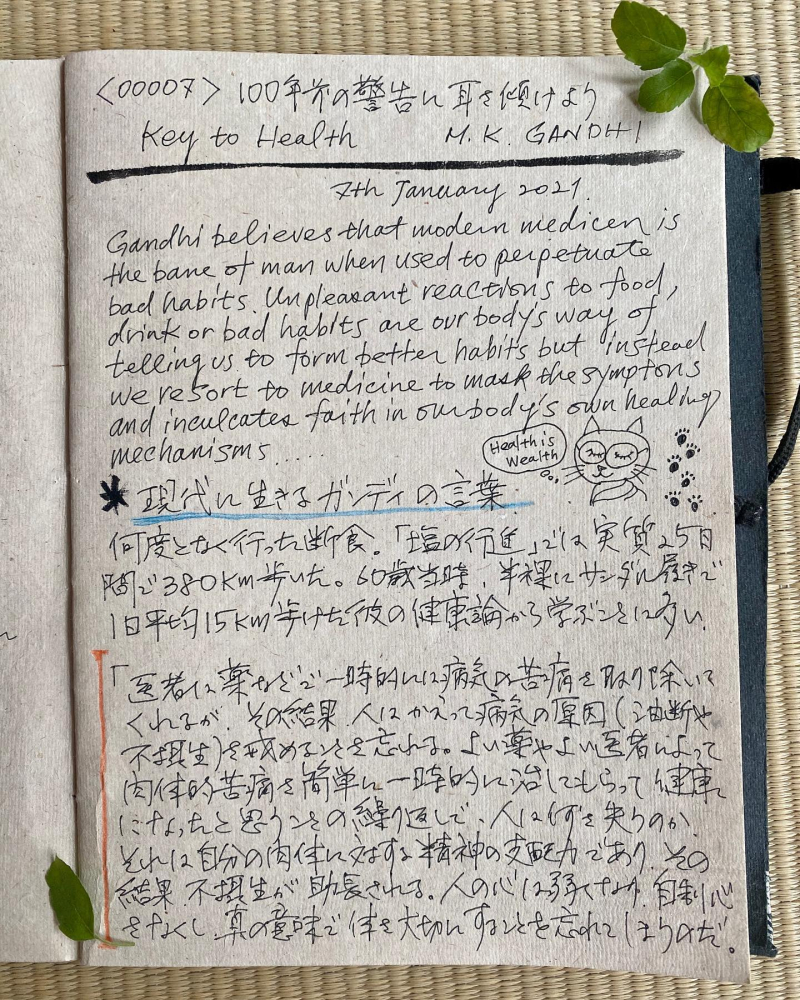 <00007> 100年前の警告に耳を傾けよう
Key to Health M.K. GANDHI
7th January 2021.
Gandhi believes that modern medicen is
the bane of man when used to perpetuate
bad habits. Unpleasant reactions to food,
drink or bad habits are our body's way of
telling us to form better habits but instead
we resort to medicine to mask the symptons
and inculcates faith in our body's own healing
mechanisms.....
Health is
Wealth
＊現代に生きるガンディの言葉
何度となく行った断食。「塩の行進」では実質25日
間で380km歩いた。60歳当時、半裸にサンダル履きで
1日平均15km歩けた彼の健康論から学ぶことは多い。
「医者は薬などで一時的には病気の苦痛を取り除いて
くれるが、その結果、人はかえって病気の原因(油断や
不摂生)を戒めることを忘れる。よい薬やよい医者によって
肉体的苦痛を簡単に一時的に治してもらって健康
になったと思うことの繰り返しで、人は何を失うのか
それは自分の肉体に対する精神の支配力であり、その
結果、不摂生が助長される。人の心は弱くなり、自制心
をなくし、真の意味で体を大切にすることを忘れてしまうのだ。